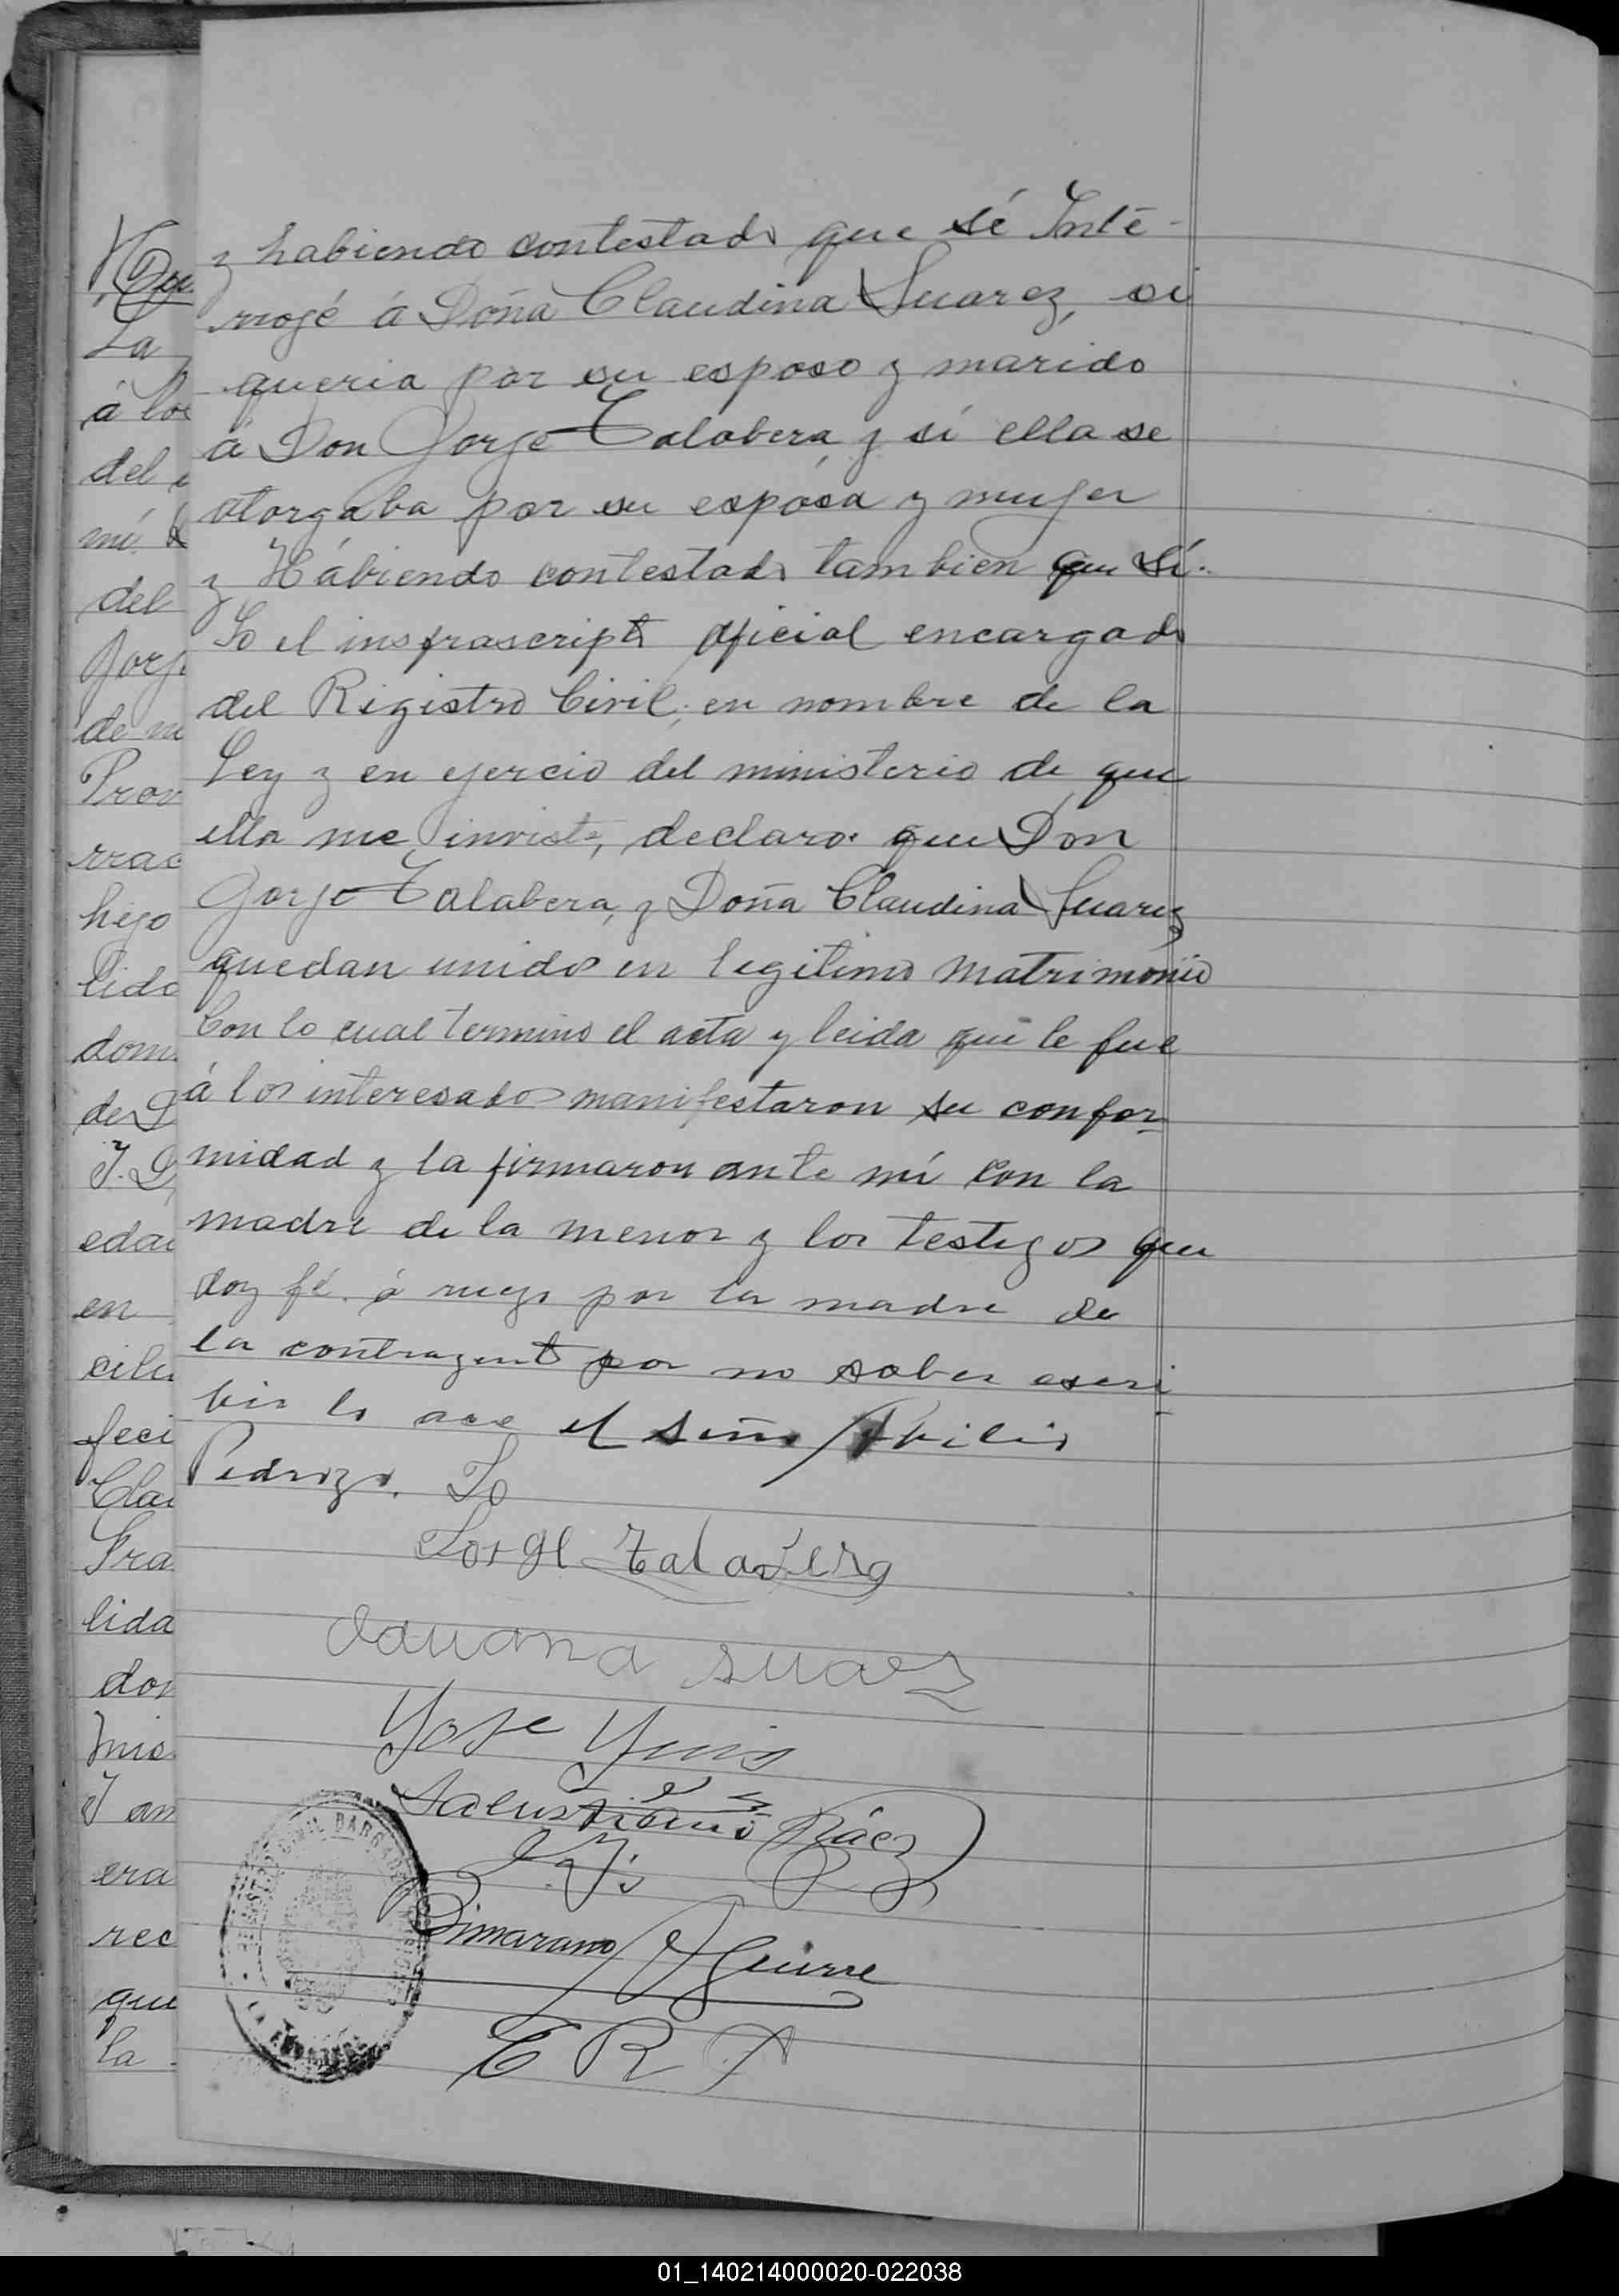 y habiendo contestado que sé Inte-
rrogé á Doña Claudina Suarez, si
queria por su esposo y marido
á Don Jorje Talabera, y si ella se
otorgaba por su espósa y mujer
y Hábiendo contestado tambien que Sí.
Yo el insfrascripto oficial encargado
del Registro Civil, en nombre de la
Ley y en ejercio del ministerio de que
ella me inviste, declaro que Don
Jorje Talabera, y Doña Claudina Suarez
quedan unidos en legitimo matrimonio
Con lo cual termino el acta y leida que le fue
á los interesados manifestaron su confor-
midad y la firmaron ante mí con la
madre de la menor y los testigos que
doy fé. á ruego por la madre de
la contrayente por no saber escri
bir lo ace el señor
Pedrozo. Yo
Jorge talabera
suarez
Jose
Salustiano Báez
Aguirre
E R
Qu
La
á los
del
mí
del
Jorje
de m
Prov
rrac
hijo
lido
dom
de
edad
en
cili
feci
Cla
Fra
lida
don
Y an
era
rec
que
la
01_140214000020-022038